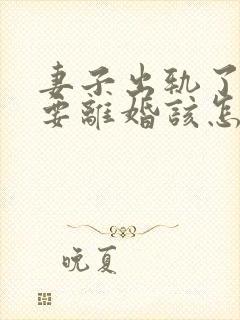 妻子出轨了
要離婚該怎
晚夏